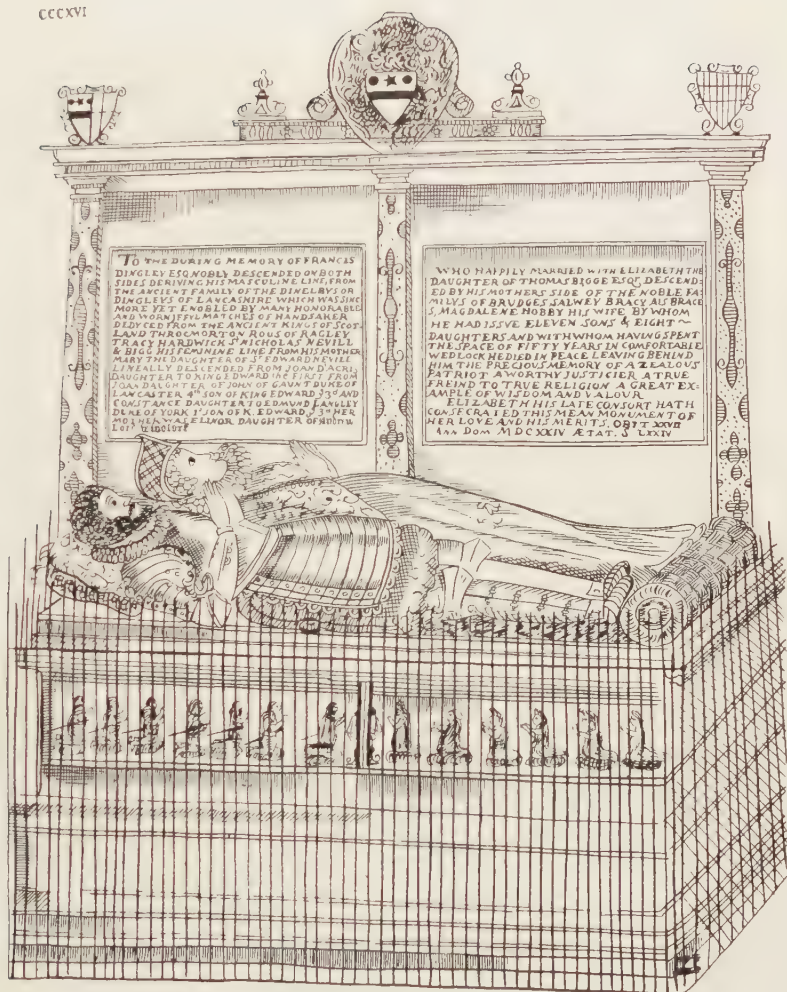 CCCXVI
TO THE DURING MEMORY OF FRANCIS
DINGLEY ESQ NOBLY DESCENDED ON BOTH
SIDES DERIVING HIS MASCULINE LINE, FROM
THE ANCIENT FAMILY OF THE DINELEYS OR
DINGLEYS OF LANCASHIRE WHICH WAS SINC
MORE YET ENOBLED BY MANY HONORABLE
AND WORSHIPFUL MATCHES OF HANDSAKER
DEDVCED FROM THE ANCIENT KINGS OF SCOT-
LAND THROCMORTON ROUS OF RAGLEY
TRACY HARDWICK Sr NICHOLAS NEVILL
& BIGG HIS FEMININE LINE FROM HIS MOTHER
MARY THE DAUGHTER OF Sr EDWARD NEVILL
LINEALLY DESCENDED FROM JOAN D'ACRES
DAUGHTER TO KING EDWARD the FIRST FROM
JOAN DAUGHTER OF JOHN OF GAUNT DUKE OF
LANCASTER 4th SON OF KING EDWARD ye 3d AND
CONSTANCE DAUGHTER TO EDMUND LANGLEY
DUKE OF YORK 1st SON OF K. EDWARD ye 3d HER
MOTHER WAS ELLINOR DAUGHTER OF
Lord
WHO HAPPILY MARRIED WITH ELIZABETH THE
DAUGHTER OF THOMAS BIGGE ESQr DESCEND:
ED BY HIS MOTHERS SIDE OF THE NOBLE FA:
MILYS OF BRUDGES SALWEY BRACY ALS BRACE
S, MAGDALENE HOBBY HIS WIFE BY WHOM
HE HAD ISSVE ELEVEN SONS & EIGHT ~
DAUGHTERS AND WITH WHOM HAVING SPENT
THE SPACE OF FIFTY YEARS IN COMFORTABLE
WEDLOCK HE DIED IN PEACE LEAVING BEHIND
HIM THE PRECIOUS MEMORY OF A ZEALOUS
PATRIOT A WORTHY JUSTICIER A TRUE
FREIND TO TRUE RELIGION A GREAT EX:
AMPLE OF WISDOM AND VALOUR
ELIZABETH HIS LATE CONSORT HATH
CONSECRATED THIS MEAN MONUMENT OF
HER LOVE AND HIS MERITS. OBIIT XXVII
Ann DOM MDCXXIV ÆTAT. S LXXIV